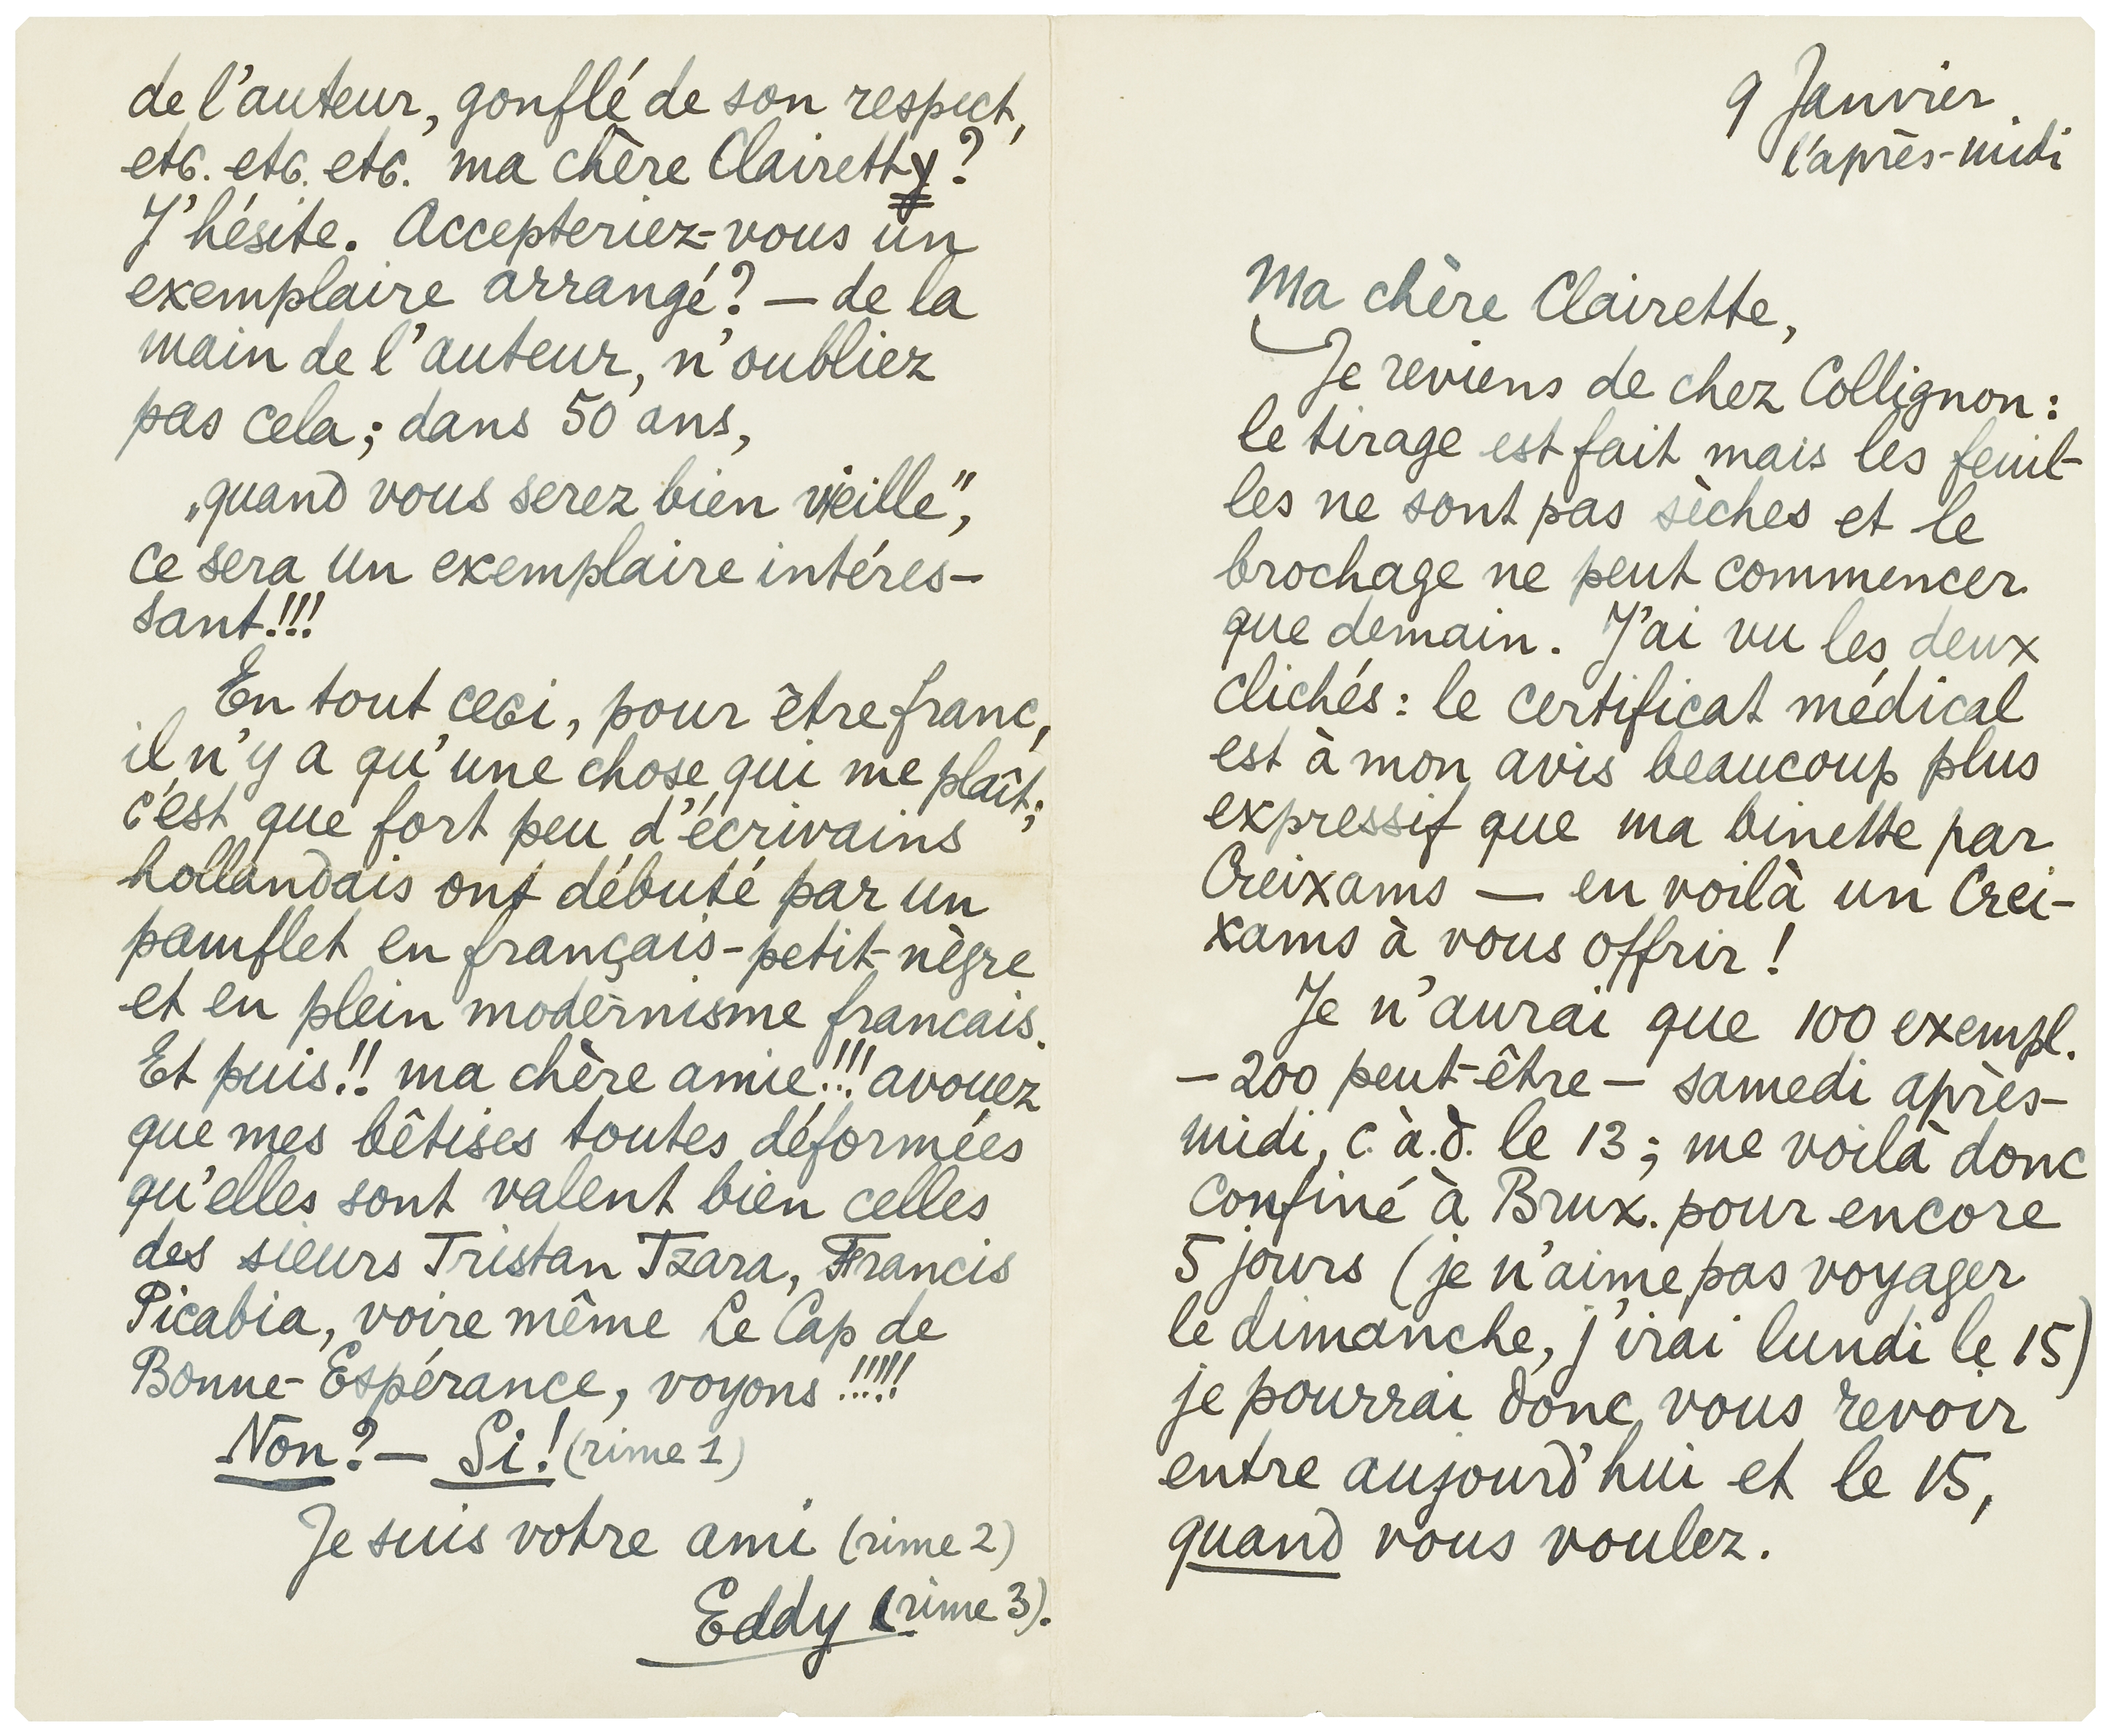 9 Janvier
l'après-midi
Ma chère Clairette,
Je reviens de chez Collignon:
le tirage est fait mais les feuil-
les ne sont pas sèches et le
brochage ne peut commencer
que demain. J'ai vu les deux
clichés: le certificat médical
est à mon avis beaucoup plus
expressif que ma binette par
Creixams — en voilà un Crei-
xams à vous offrir!
Je n'aurai que 100 exempl.
— 200 peut-être — samedi après-
midi, c.à.d. le 13; me voilà donc
confiné à Brux. pour encore
5 jours (je n'aime pas voyager
le dimanche, j'irai lundi le 15)
je pourrai donc vous revoir
entre aujourd'hui et le 15,
quand vous voulez.
de l'auteur, gonflé de son respect,
etc. etc. etc. ma chère Clairetty?
J'hésite. Accepteriez-vous un
exemplaire arrangé? — de la
main de l'auteur, n'oubliez
pas cela; dans 50 ans,
„quand vous serez bien vieille",
ce sera un exemplaire intéres-
sant!!!
En tout ceci, pour être franc,
il n'y a qu'une chose qui me plaît;
c'est que fort peu d'écrivains
hollandais ont débuté par un
pamflet en français-petit-nègre
et en plein modernisme francais.
Et puis!! ma chère amie!!! avouez
que mes bêtises toutes déformées
qu'elles sont valent bien celles
des sieurs Tristan Tzara, Francis
Picabia, voire même Le Cap de
Bonne-Espérance, voyons!!!!!
Non? — Si! (rime 1)
Je suis votre ami (rime 2)
Eddy (rime 3).